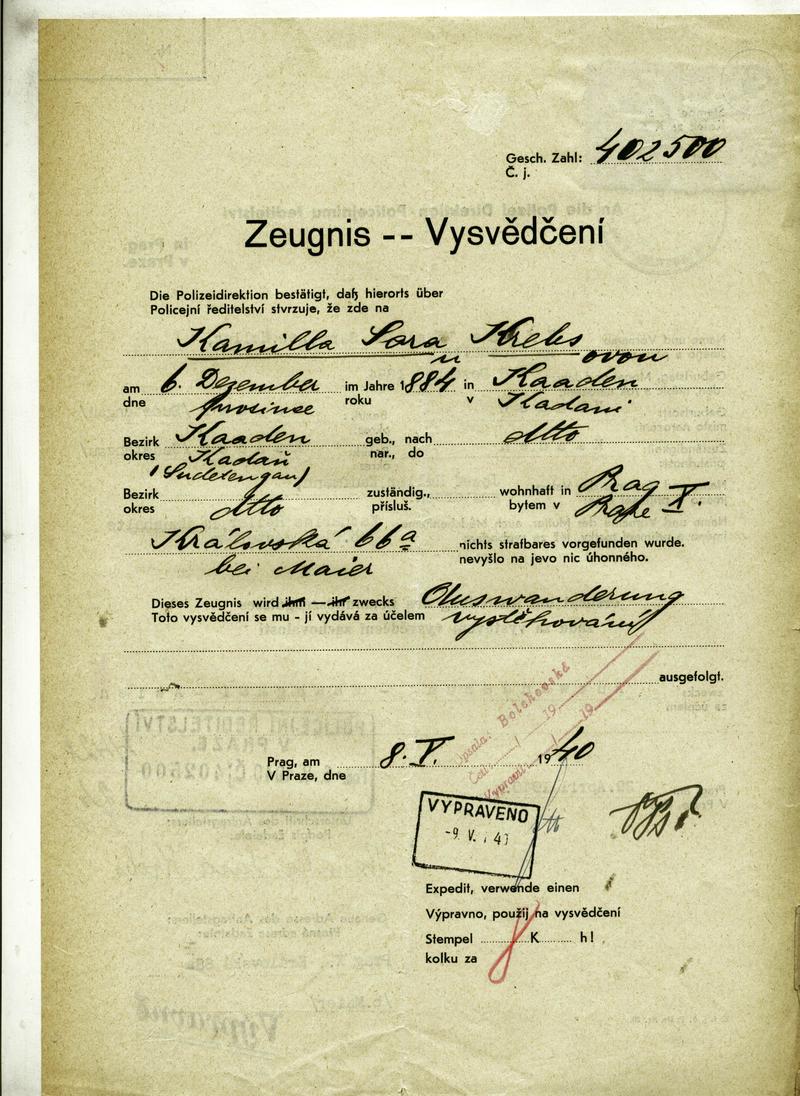 Gesch. Zahl: 402500
Č. j.
Zeugnis -- Vysvědčení
Die Polizeidirektion bestätigt, daß hierorts über
Policejní ředitelství stvrzuje, že zde na
Kamilla Sara Krebs
ovou
am 6. Dezember im Jahre 1884 in Kaaden
dne prosince roku v Kadani
Bezirk Kaaden geb., nach dtto
okres Kadaň nar., do
(Sudetengau)
Bezirk dtto zuständig., wohnhaft in Prag X.
okres přísluš. bytem v Praze
Královská 66a nichts strafbares vorgefunden wurde.
bei Maier nevyšlo na jevo nic úhonného.
Dieses Zeugnis wird ihm — ihr zwecks Auswanderung
Toto vysvědčení se mu - jí vydává za účelem vystěhování
ausgefolgt.
opsala: Bolehovská
Četl: / 19
Vypravil: / 19
Prag, am 8. V. 1940
V Praze, dne
VYPRAVENO
-9. V.
Expedit, verwende einen
Výpravno, použij na vysvědčení
Stempel K h!
kolku za